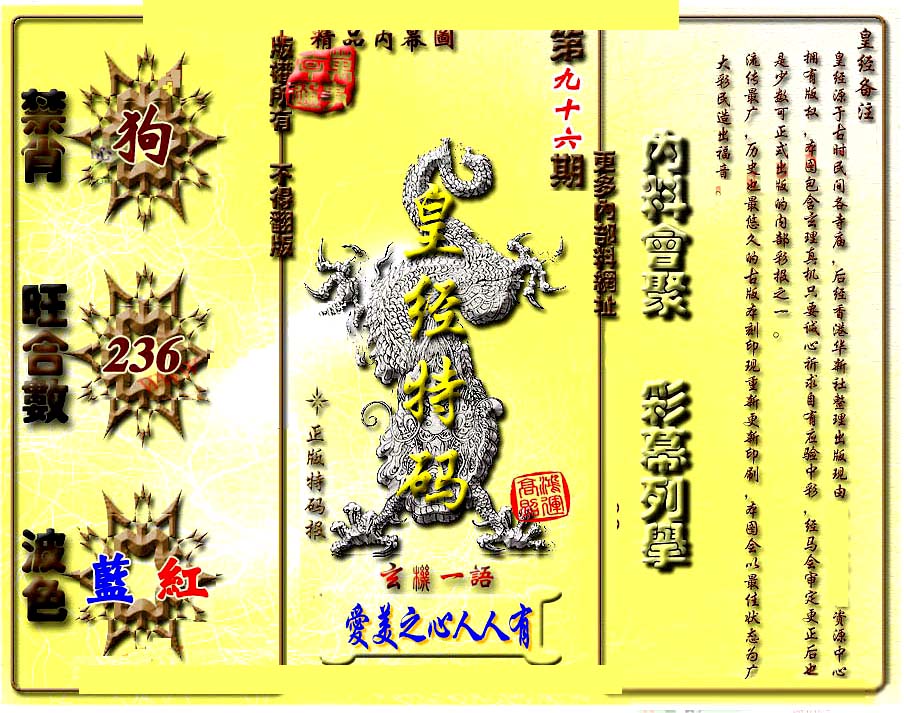 禁肖
狗
旺合數
236
波色
藍 紅
精品内幕圖
版權所有 不得翻版
第九十六期
更多内部料網址
皇经特码
正版特码报
鴻運高照
玄機一語
愛美之心人人有
内料會聚 彩幕列舉
皇经备注
皇经源于古时民间各寺庙，后经香港华新社整理出版现由 资源中心
拥有版权，本图包含玄理真机只要诚心祈求自有应验中彩，经马会审定更正后也
是少数可正式出版的内部彩报之一。
流传最广，历史也最悠久的古版本刻印现重新更新印刷，本图会以最佳状态为广
大彩民造出福音